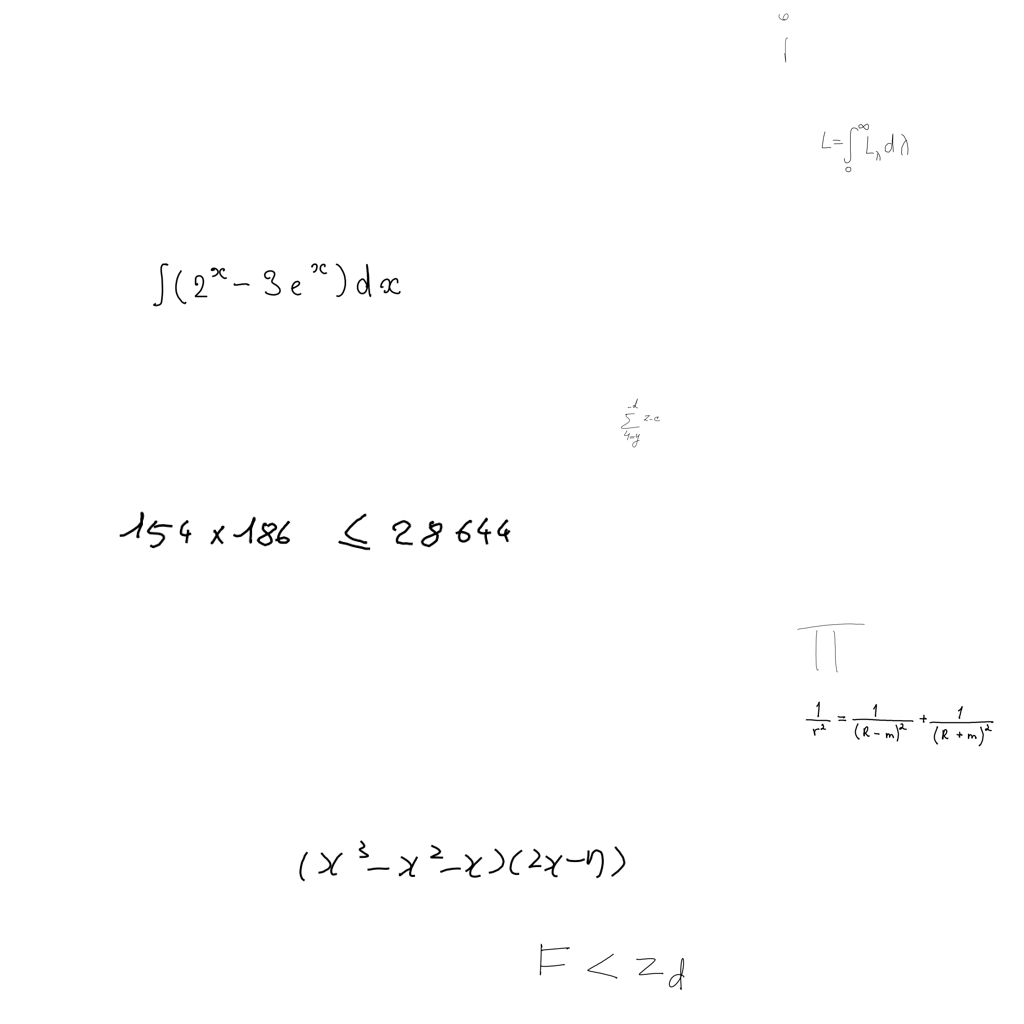 L=∫₀^∞ L_λ dλ
∫(2^x − 3e^x)dx
∑_{4=y}^{-d} z-e
154 × 186 ≤ 28644
∏
1/r² = 1/(R−m)² + 1/(R+m)²
(x³−x²−x)(2x−η)
F < z_d